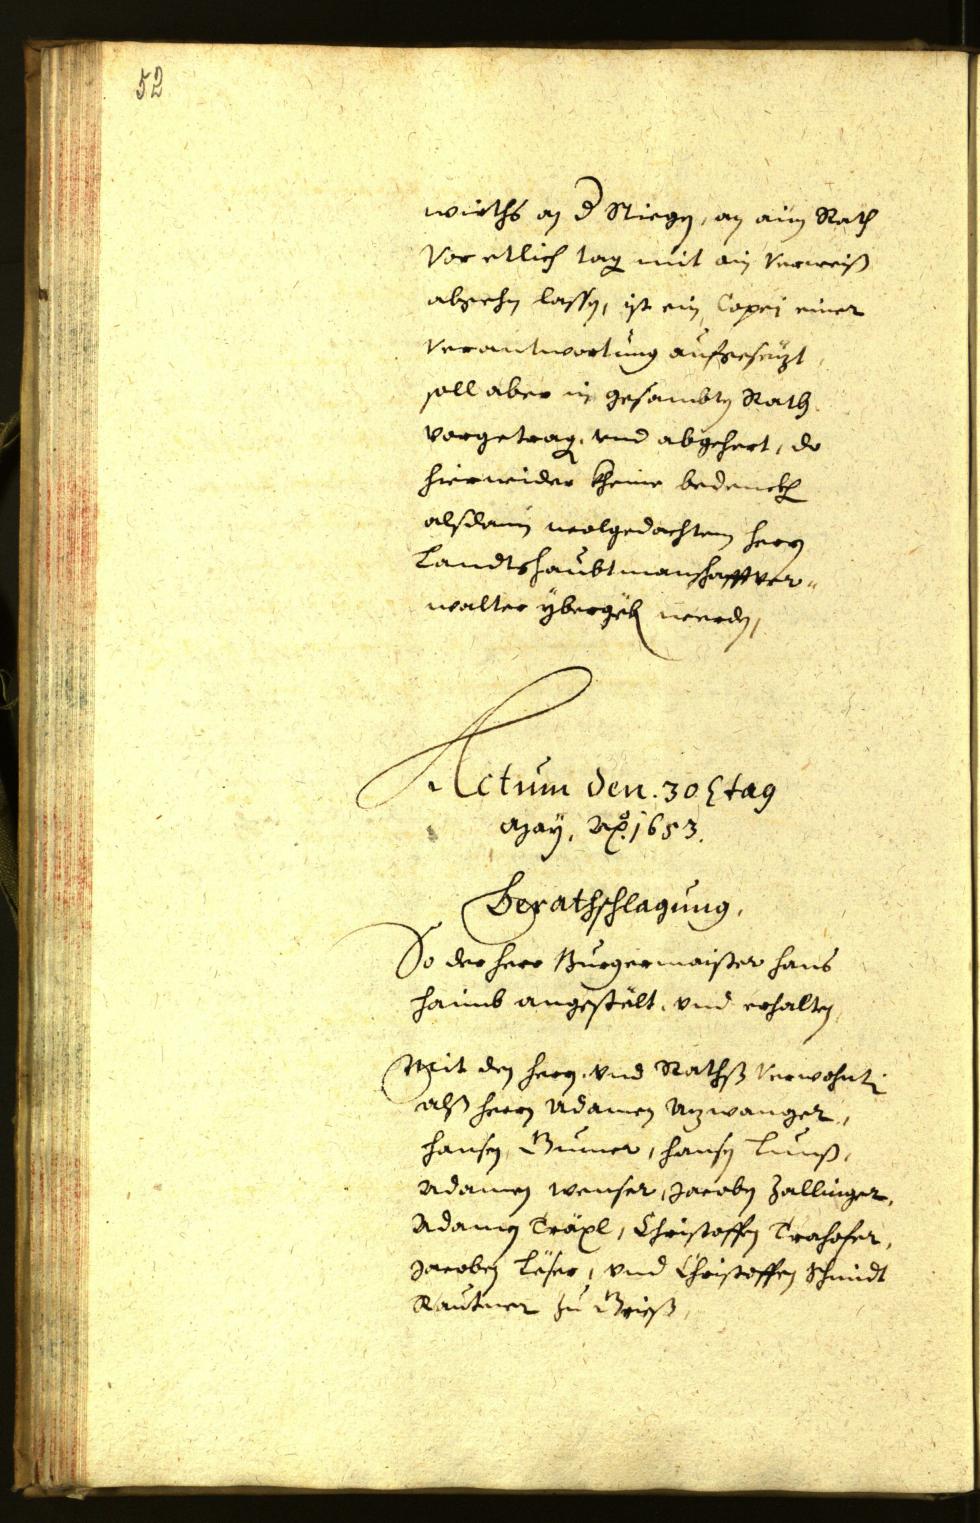 52
wirths an d Stiegen, an ain Rath
Vor etlich tag mit ain Verweiß
abgehn lassen, ist ein Copej einer
Verantwortung aufgesetzt,
soll aber in gesambten Rath
vorgetragen, und abgehert, do
hierwider kheine bedenckhen
alsdann wolgedachtem herrn
Landtshaubtmanschafftver-
walter ybergeben werden,
Actum den. 30 tag
May, Ao. 1653.
Berathschlagung,
So der herr Burgermaister hans
haimb angestelt, und erhalten
Mit den herrn, und Rathß Verwohnten
alß herrn Adamen
hansen, hansen
Adamen wenser, Jacoben Zallinger,
Adamen Träxl, Christoffen Trahofer,
Jacoben Leser, und Christoffen Schmidt
Rautner zu Grieß,